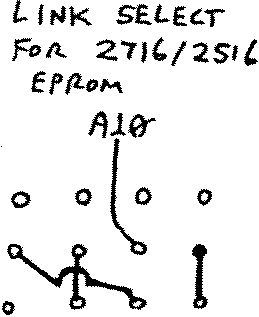 LINK SELECT
FOR 2716/2516
EPROM
A10